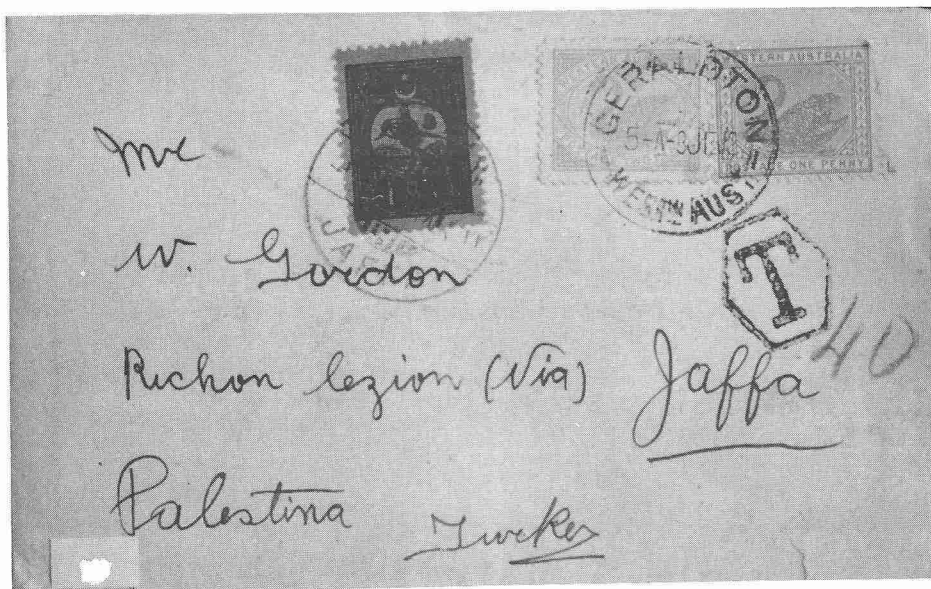 WESTERN AUSTRALIA
ONE PENNY
GERALDTON
WEST'N AUST.
JAFFA
T
40
Mr
W. Gordon
Richon lezion (Via) Jaffa
Palestina Turkey